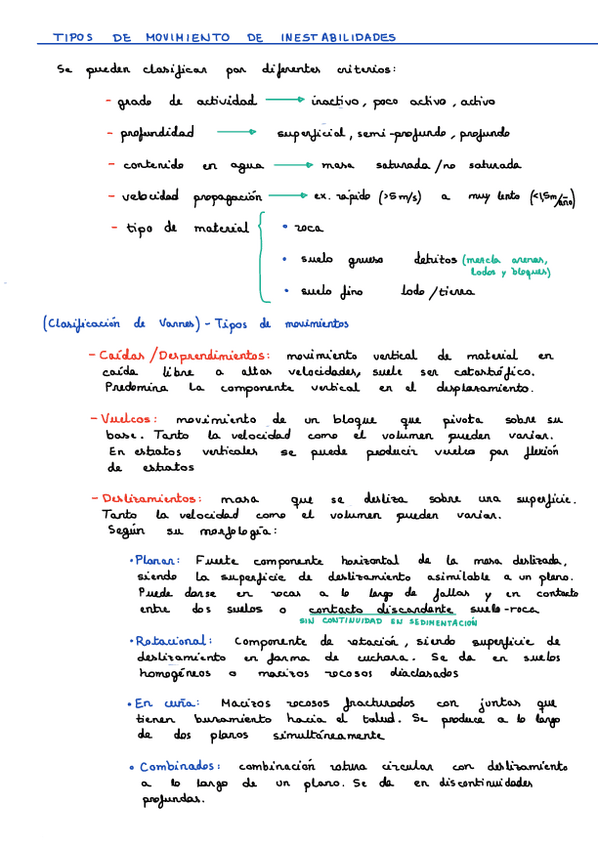 TIPOS DE MOVIMIENTO DE INESTABILIDADES
Se pueden clasificar por diferentes criterios:
- grado de actividad → inactivo, poco activo, activo
- profundidad → superficial, semi-profundo, profundo
- contenido en agua → masa saturada/no saturada
- velocidad propagación → ex. rápido (>5m/s) a muy lento (<1,5m/año)
- tipo de material { • roca
• suelo grueso detritos (mezcla arenas,
lodos y bloques)
• suelo fino lodo/tierra
(Clasificación de Varnes) - Tipos de movimientos
- Caídas/Desprendimientos: movimiento vertical de material en
caída libre a altas velocidades, suele ser catastrófico.
Predomina la componente vertical en el desplazamiento.
- Vuelcos: movimiento de un bloque que pivota sobre su
base. Tanto la velocidad como el volumen pueden variar.
En estratos verticales se puede producir vuelco por flexión
de estratos
- Deslizamientos: masa que se desliza sobre una superficie.
Tanto la velocidad como el volumen pueden variar.
Según su morfología:
• Planar: Fuerte componente horizontal de la masa deslizada,
siendo la superficie de deslizamiento asimilable a un plano.
Puede darse en rocas a lo largo de fallas y en contacto
entre dos suelos o contacto discordante suelo-roca
SIN CONTINUIDAD EN SEDIMENTACIÓN
• Rotacional: Componente de rotación, siendo superficie de
deslizamiento en forma de cuchara. Se da en suelos
homogéneos o macizos rocosos diaclasados
• En cuña: Macizos rocosos fracturados con juntas que
tienen buzamiento hacia el talud. Se produce a lo largo
de dos planos simultáneamente
• Combinados: combinación rotura circular con deslizamiento
a lo largo de un plano. Se da en discontinuidades
profundas.